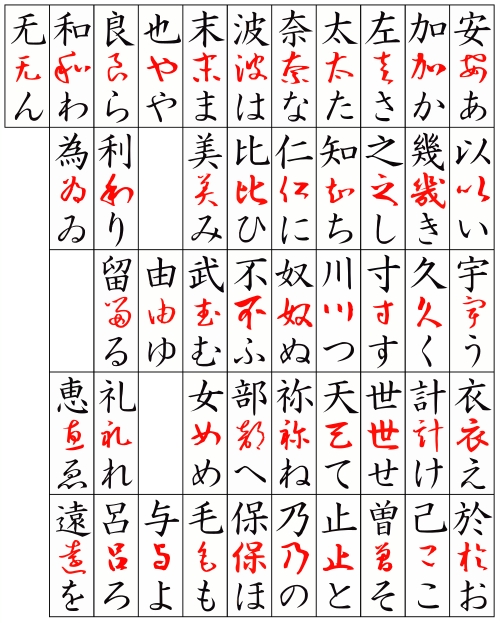 安安あ 以以い 宇宇う 衣衣え 於於お
加加か 幾幾き 久久く 計計け 己己こ
左左さ 之之し 寸寸す 世世せ 曽曽そ
太太た 知知ち 川川つ 天天て 止止と
奈奈な 仁仁に 奴奴ぬ 祢祢ね 乃乃の
波波は 比比ひ 不不ふ 部部へ 保保ほ
末末ま 美美み 武武む 女女め 毛毛も
也也や 由由ゆ 与与よ
良良ら 利利り 留留る 礼礼れ 呂呂ろ
和和わ 為為ゐ 恵恵ゑ 遠遠を
无无ん